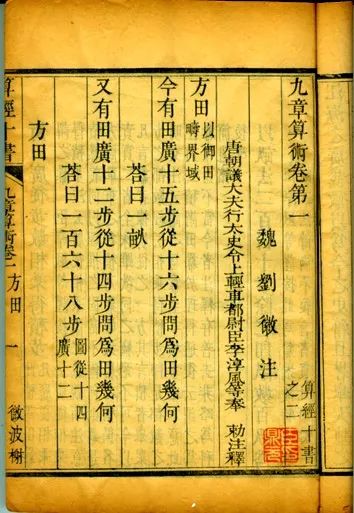 九章算術卷第一
算經十書之二
魏 劉徽 注
唐朝議大夫行太史令上輕車都尉臣李淳風等奉 勅注釋
方田以御田疇界域
今有田廣十五步從十六步問爲田幾何
荅曰一畝
又有田廣十二步從十四步問爲田幾何
荅曰一百六十八步圖從十四廣十二
方田
算經十書
九章算術卷一 方田
一
微波榭